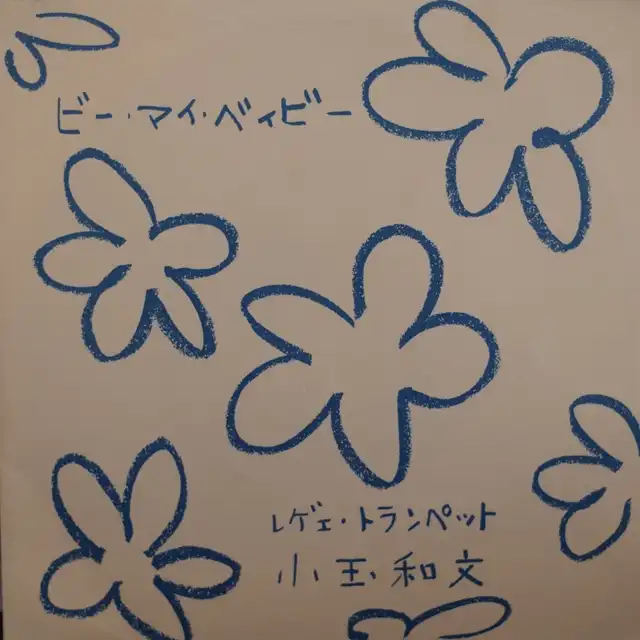 ビー・マイ・ベイビー
レゲエ・トランペット
小玉和文